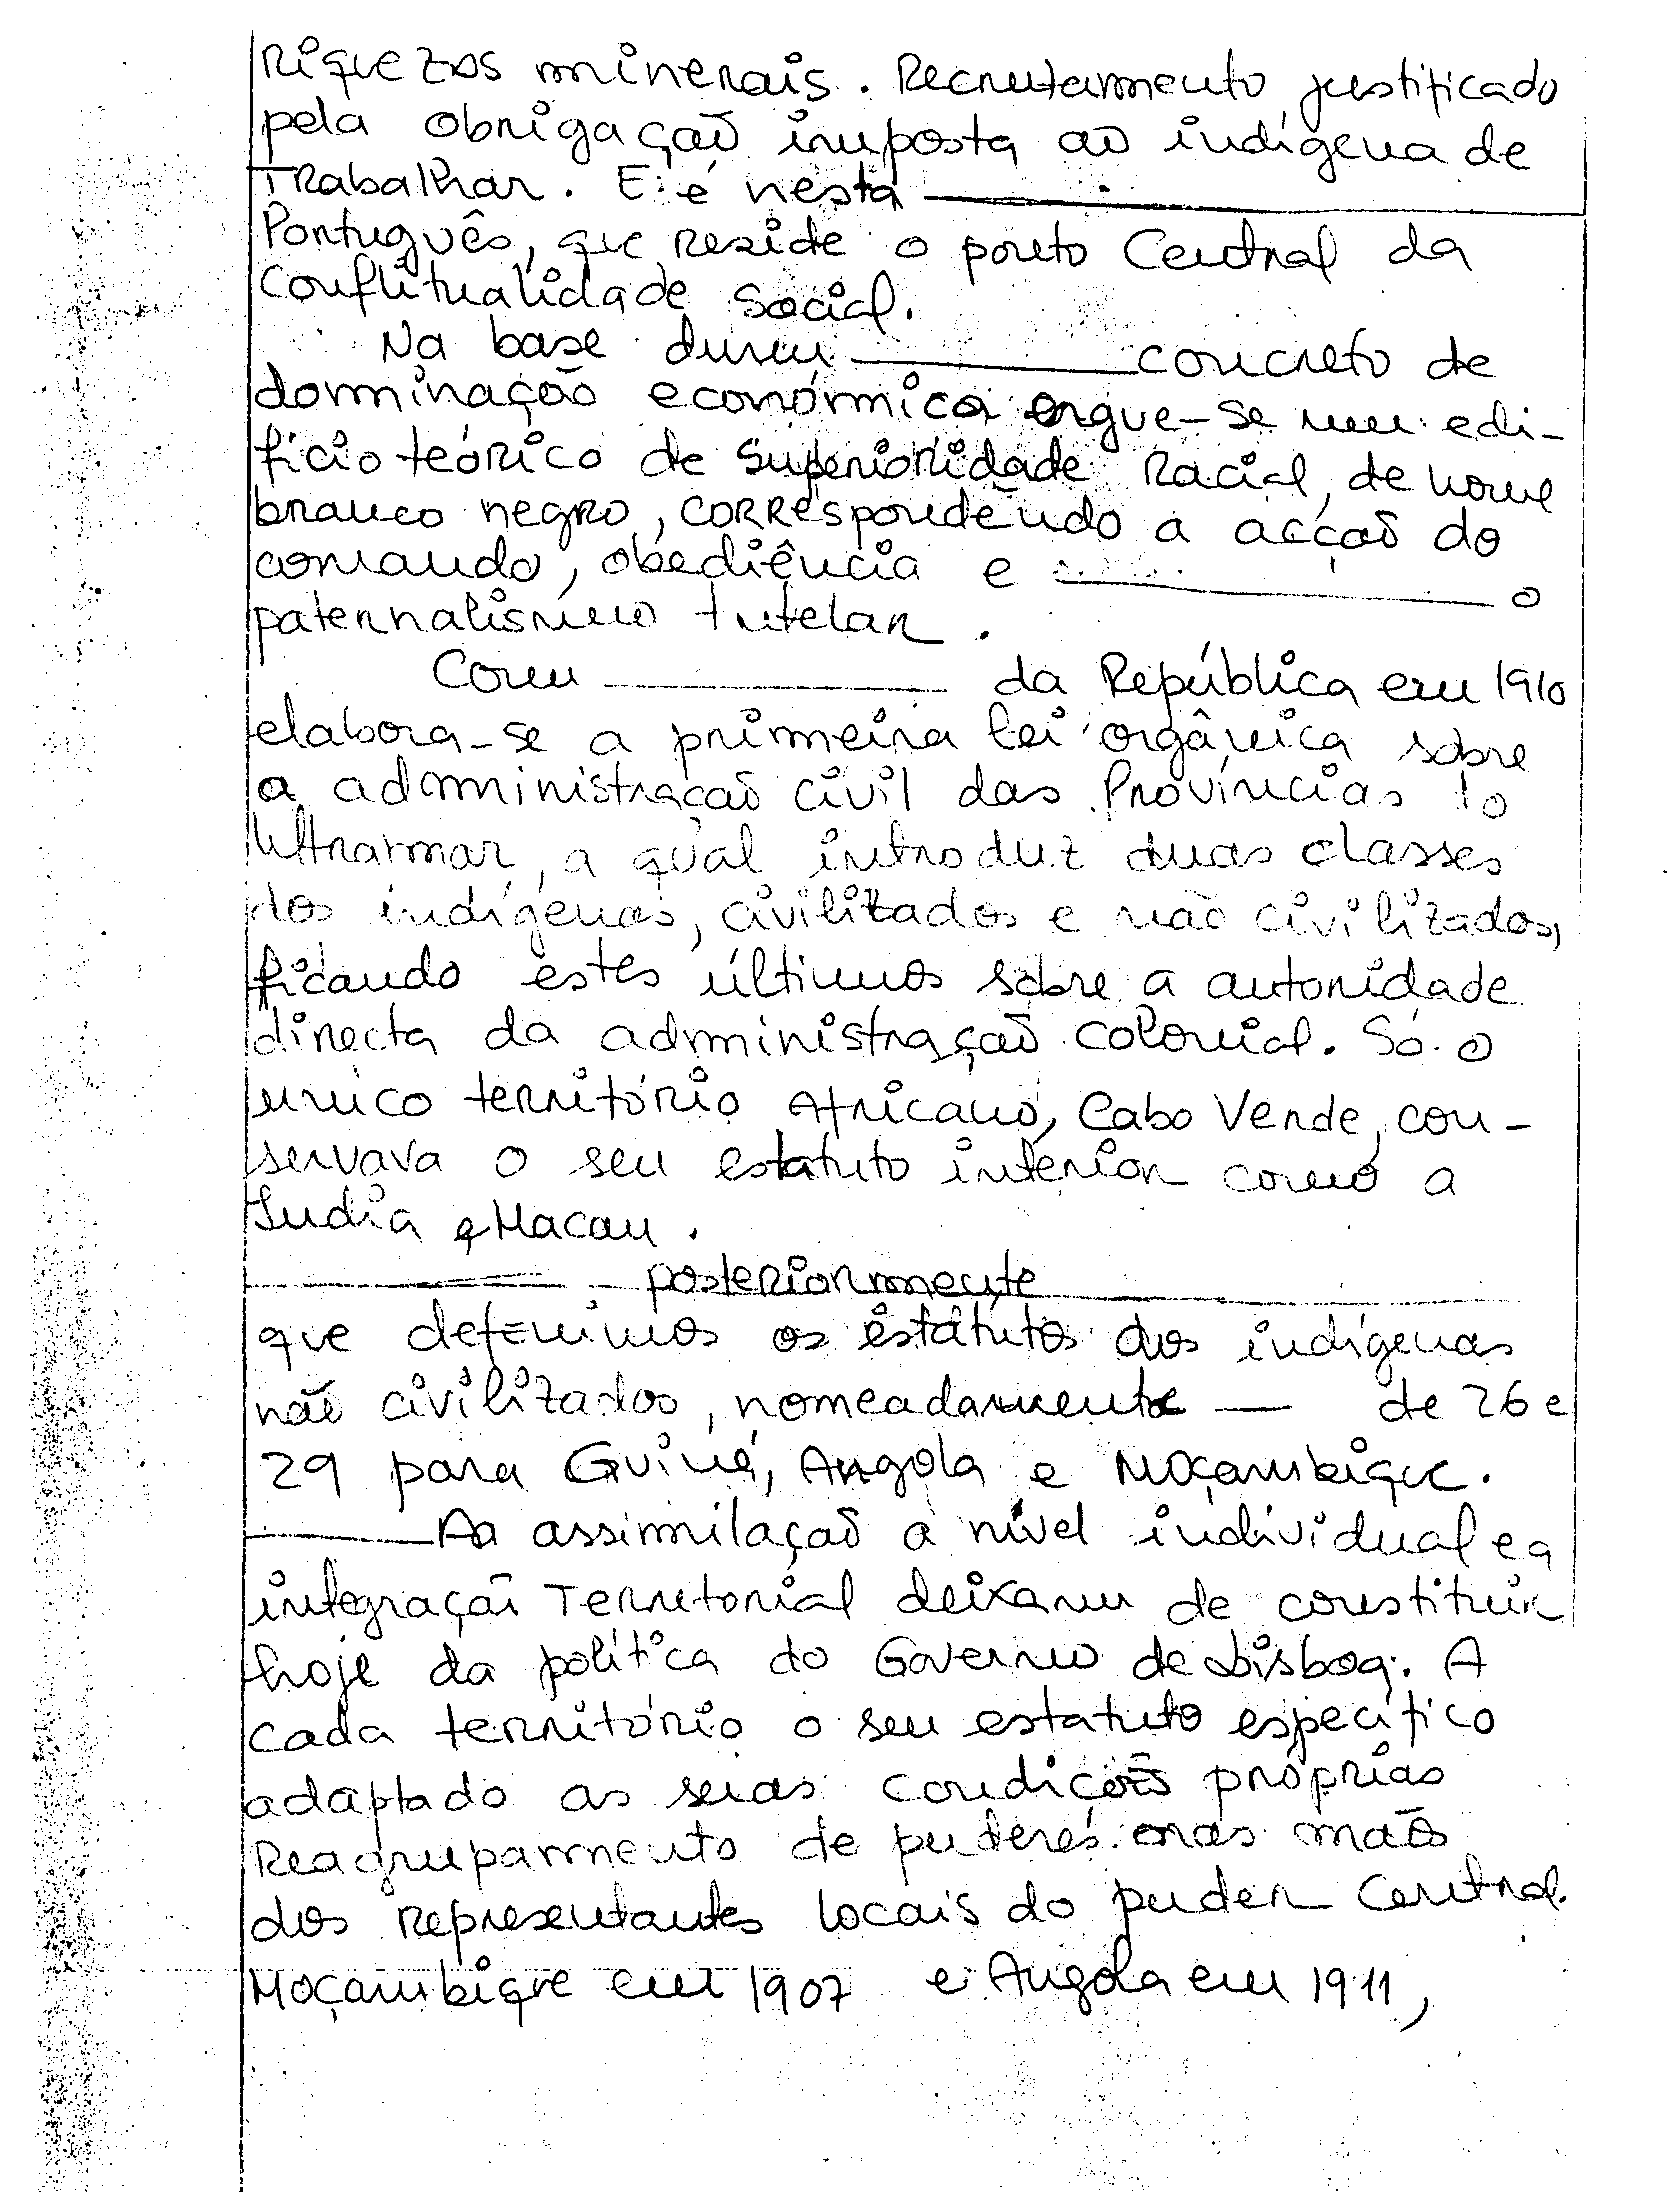 Riquezas minerais. Recrutamento justificado
pela obrigação imposta ao indígena de
Trabalhar. E é nesta ________
Português, que reside o ponto Central da
Conflitualidade social.
Na base dum ________ concreto de
dominação económica ergue-se um edi-
fício teórico de Superioridade Racial, de nome
branco negro, correspondendo a acção do
comando, obediência e ________ o
paternalismo tutelar.
Com ________ da República em 1910
elabora-se a primeira lei orgânica sobre
a administração civil das Províncias do
Ultramar, a qual introduz duas classes
dos indígenas, civilizados e não civilizados,
ficando estes últimos sobre a autoridade
directa da administração colonial. Só o
unico território Africano, Cabo Verde, con-
servava o seu estatuto interior como a
India e Macau.
________ posteriormente ________
que definimos os estatutos dos indígenas
não civilizados, nomeadamente — de 26 e
29 para Guiné, Angola e Moçambique.
________ Aa assimilação a nível individual e a
integração Territorial deixaram de constituir
hoje da política do Governo de Lisboa. A
cada território o seu estatuto específico
adaptado as suas condições próprias
Reagrupamento de puderes nas mãos
dos representantes locais do puder Central.
Moçambique em 1907 e Angola em 1911,